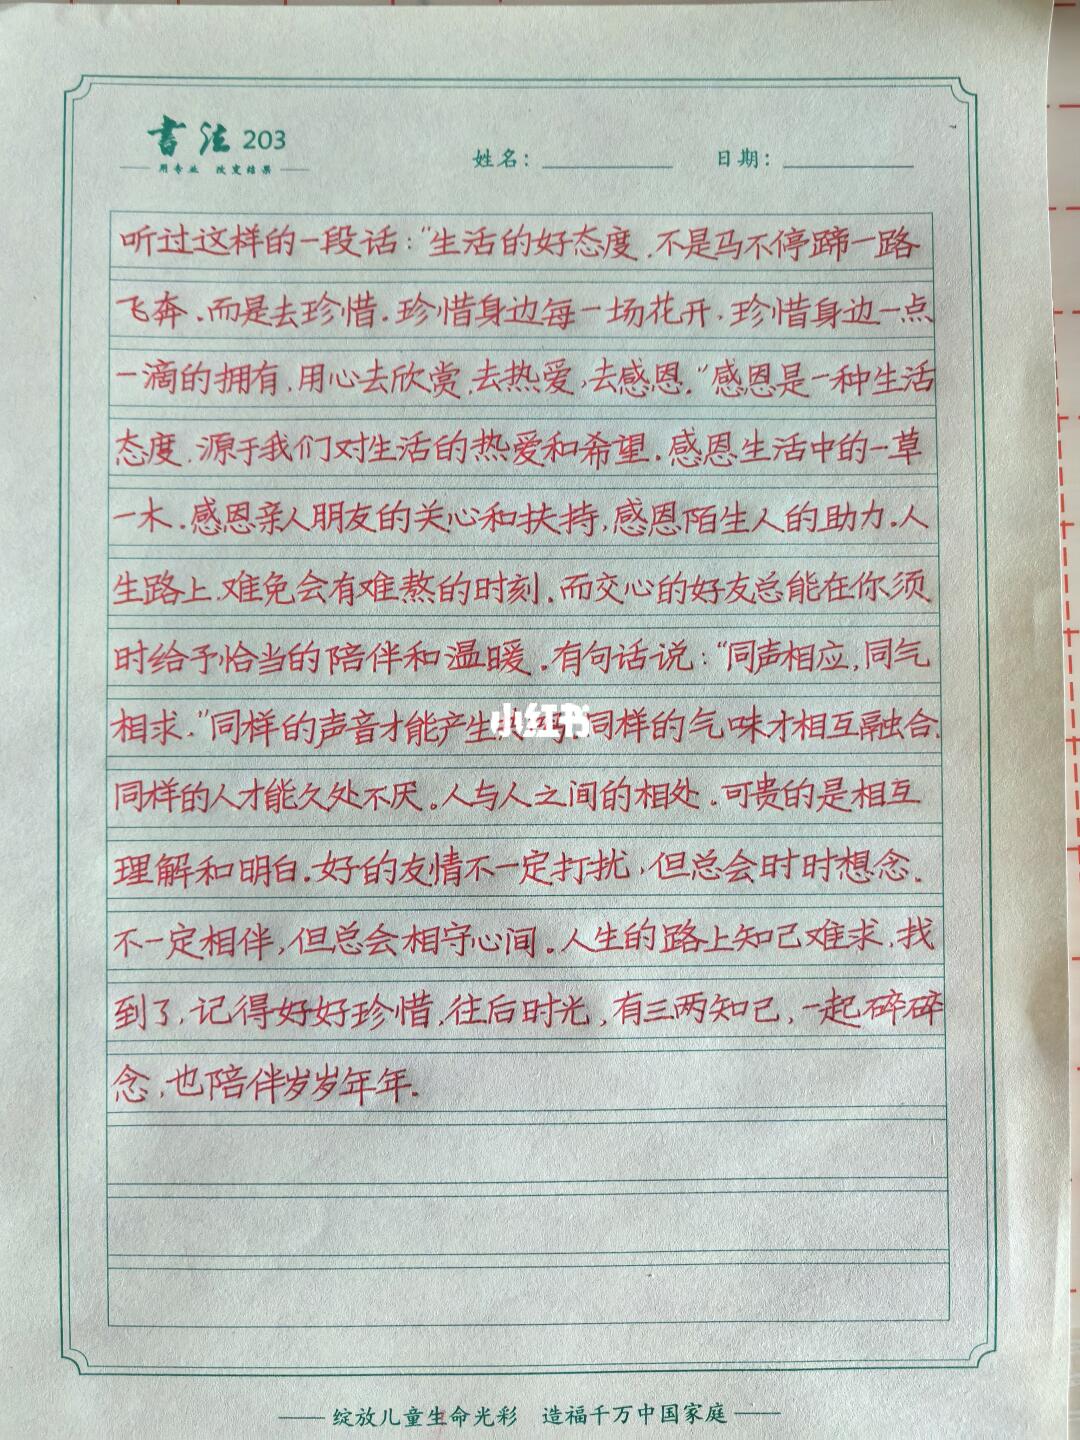 书法 203
用专业 改变结果
姓名：
日期：
听过这样的一段话："生活的好态度，不是马不停蹄一路
飞奔。而是去珍惜。珍惜身边每一场花开，珍惜身边一点
一滴的拥有，用心去欣赏，去热爱，去感恩。"感恩是一种生活
态度，源于我们对生活的热爱和希望。感恩生活中的一草
一木。感恩亲人朋友的关心和扶持，感恩陌生人的助力。人
生路上，难免会有难熬的时刻。而交心的好友总能在你须
时给予恰当的陪伴和温暖。有句话说："同声相应，同气
相求。"同样的声音才能产生 同样的气味才相互融合.
小红书
同样的人才能久处不厌。人与人之间的相处。可贵的是相互
理解和明白。好的友情不一定打扰，但总会时时想念。
不一定相伴，但总会相守心间。人生的路上知己难求，找
到了，记得好好珍惜，往后时光，有三两知己，一起碎碎
念，也陪伴岁岁年年.
绽放儿童生命光彩 造福千万中国家庭